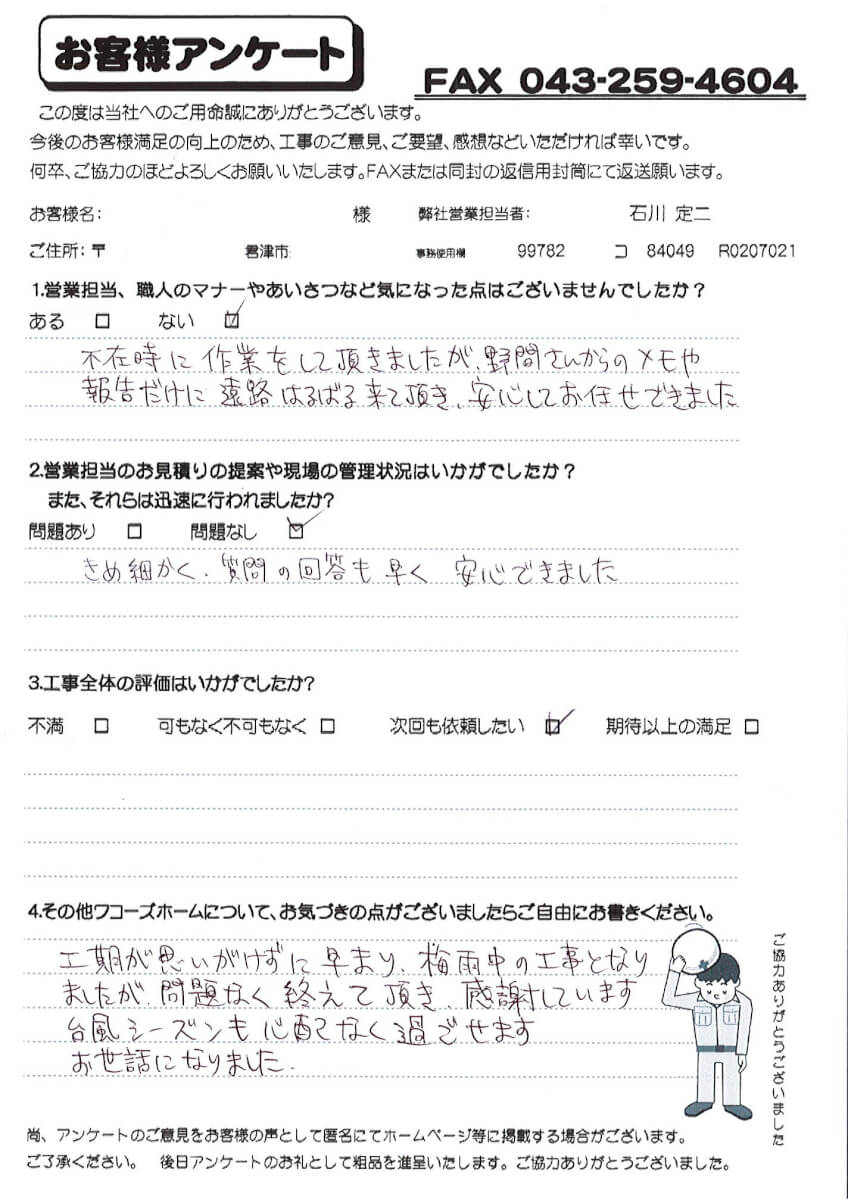 お客様アンケート
FAX 043-259-4604
この度は当社へのご用命誠にありがとうございます。
今後のお客様満足の向上のため、工事のご意見、ご要望、感想などいただければ幸いです。
何卒、ご協力のほどよろしくお願いいたします。FAXまたは同封の返信用封筒にて返送願います。
お客様名: 様 弊社営業担当者: 石川 定二
ご住所:〒 君津市 事務使用欄 99782 コ 84049 R0207021
1.営業担当、職人のマナーやあいさつなど気になった点はございませんでしたか?
ある □ ない ☑
不在時に作業をして頂きましたが、野間さんからのメモや
報告だけに遠路はるばる来て頂き、安心してお任せできました
2.営業担当のお見積りの提案や現場の管理状況はいかがでしたか?
また、それらは迅速に行われましたか?
問題あり □ 問題なし ☑
きめ細かく、質問の回答も早く 安心できました
3.工事全体の評価はいかがでしたか?
不満 □ 可もなく不可もなく □ 次回も依頼したい ☑ 期待以上の満足 □
4.その他ワコーズホームについて、お気づきの点がございましたらご自由にお書きください。
工期が思いがけずに早まり、梅雨中の工事となり
ましたが、問題なく終えて頂き、感謝しています
台風シーズンも心配なく過ごせます
お世話になりました.
ご協力ありがとうございました
尚、アンケートのご意見をお客様の声として匿名にてホームページ等に掲載する場合がございます。
ご了承ください。 後日アンケートのお礼として粗品を進呈いたします。ご協力ありがとうございました。